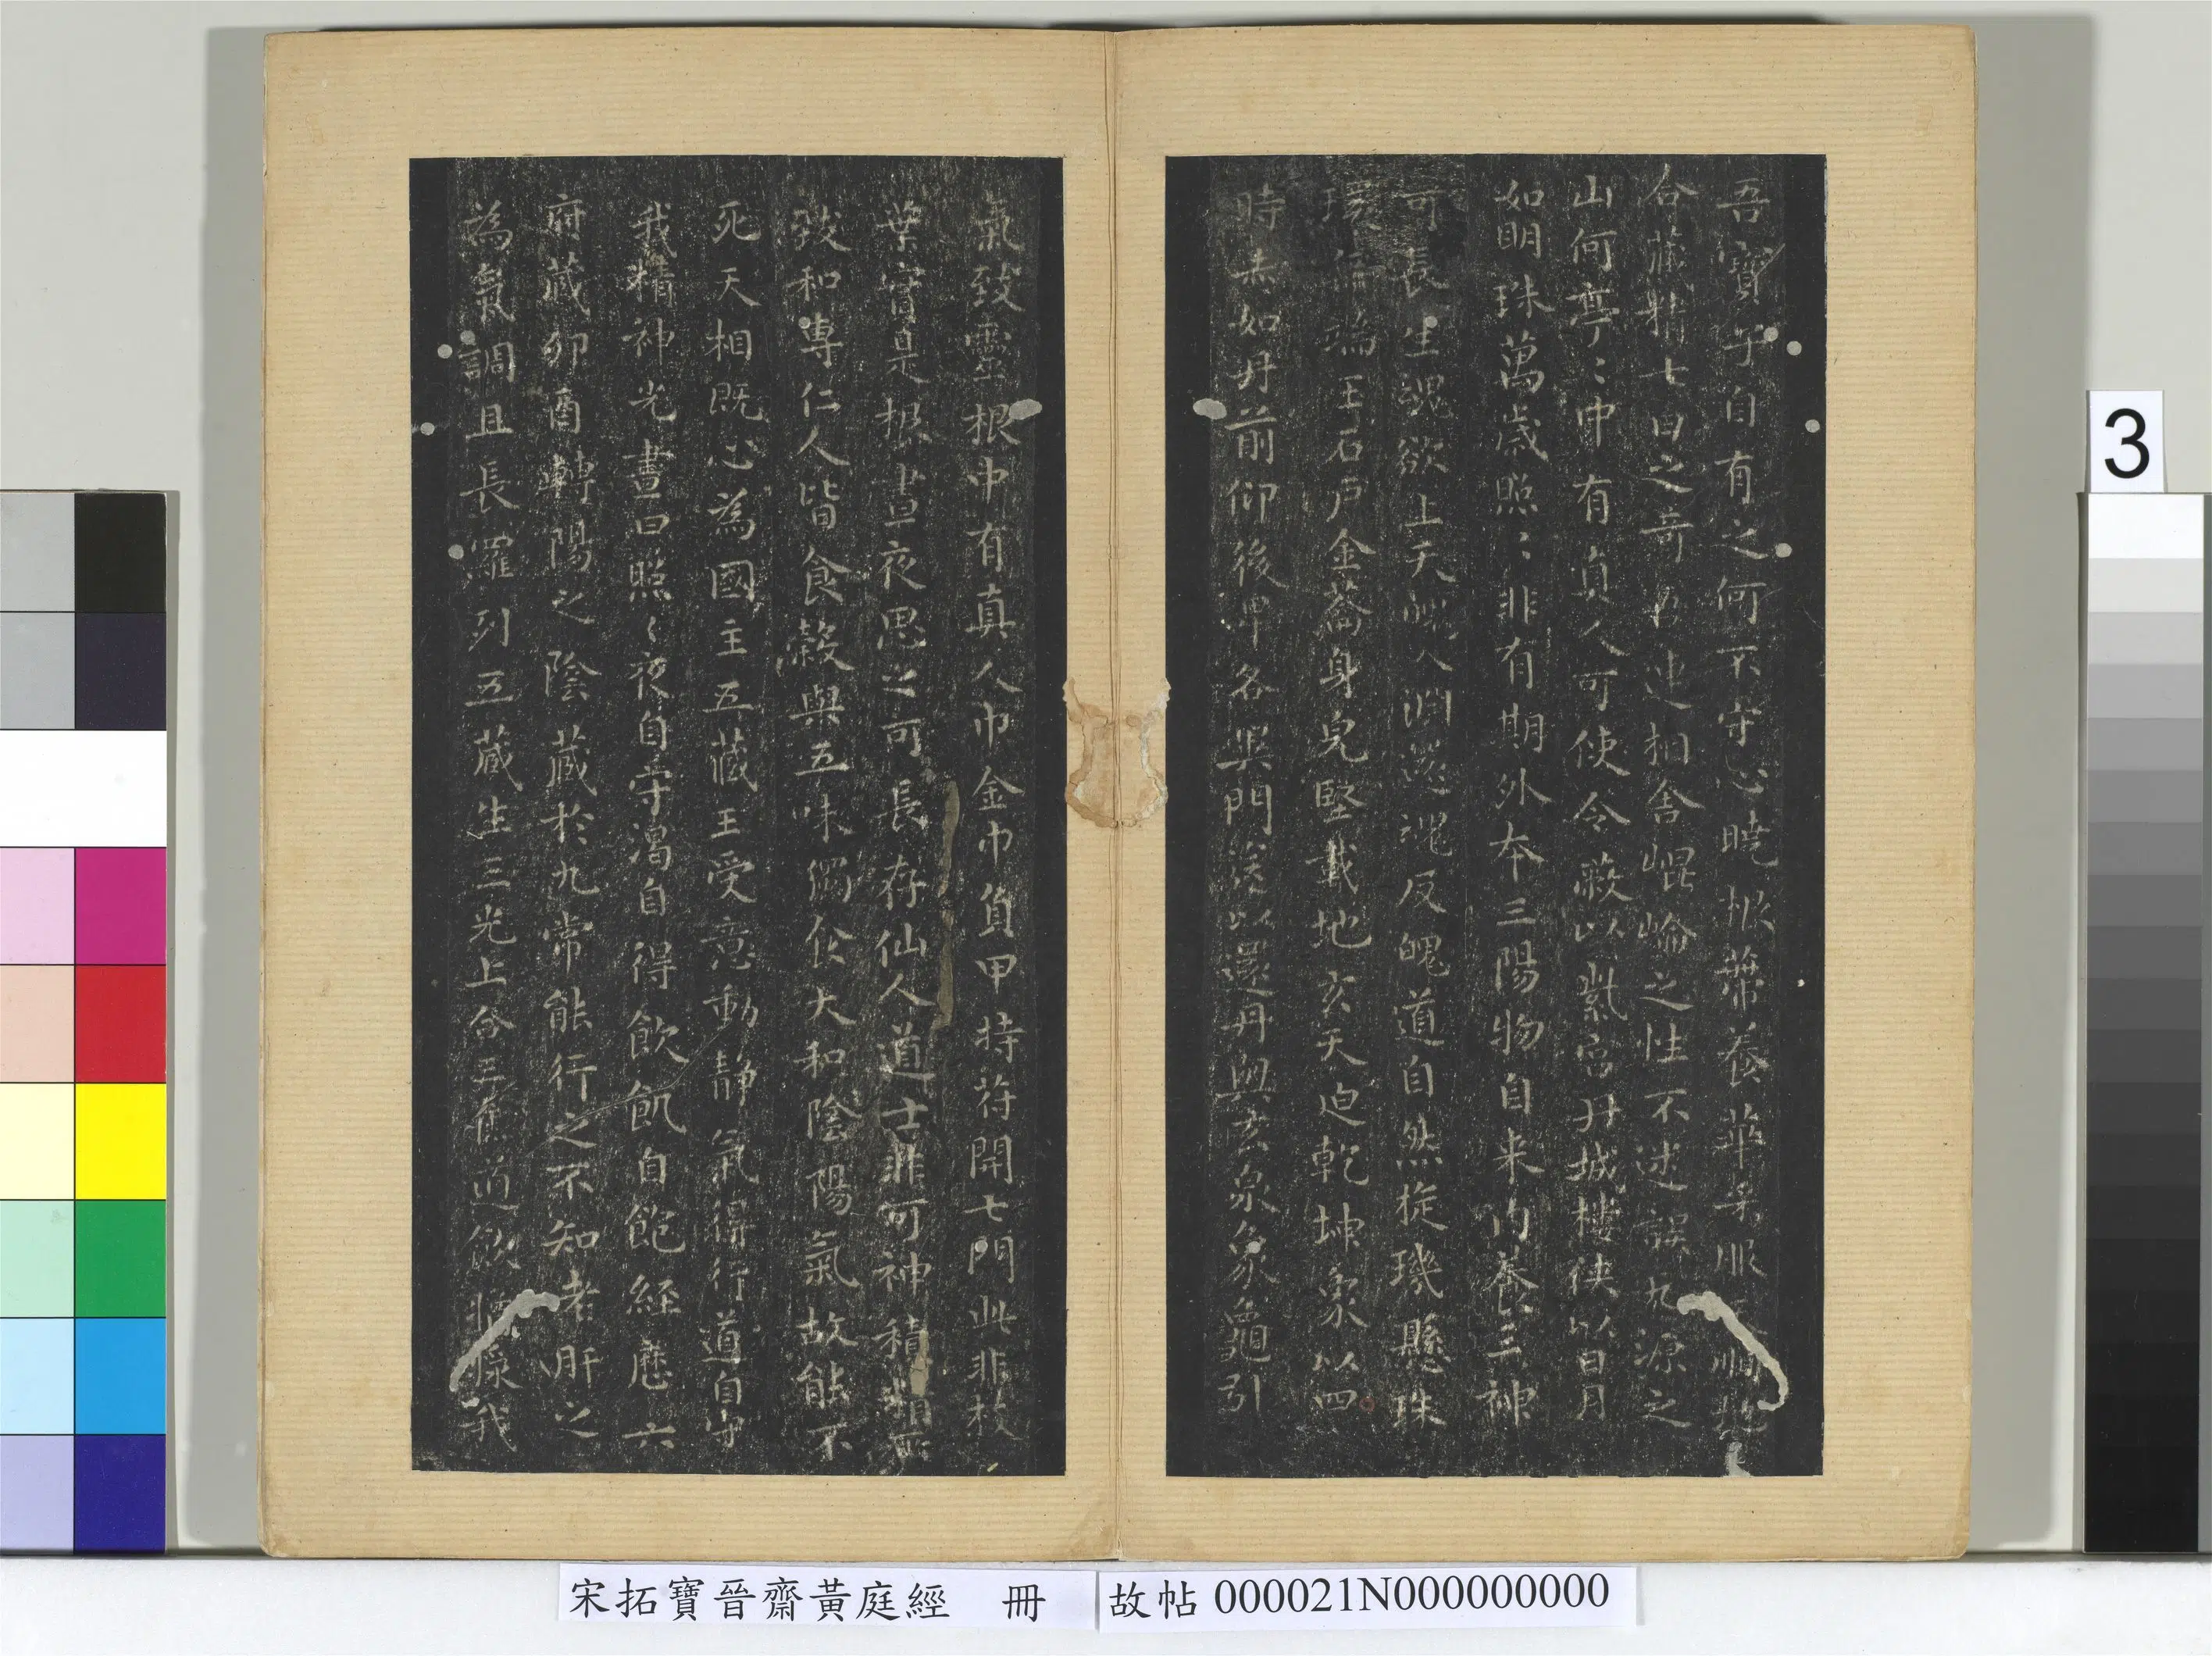 吾寶乎自有之何不守心曉根蒂養華采服天順地
合藏精七日之奇吾連相舍崐崘之性不迷誤九源之
山何亭〻中有真人可使令蔽以紫宮丹城樓俠以日月
如明珠萬歲照〻非有期外本三陽物自来内養三神
可長生魂欲上天魄入淵還魂反魄道自然旋璣懸珠
環無端玉石戶金蘥身皃堅載地玄天迫乾坤象以四
時赤如丹前仰後卑各異門送以還丹與玄泉象龜引
氣致靈根中有真人巾金巾負甲持苻開七門此非枝
葉實是根晝夜思之可長存仙人道士非可神積精所
致和專仁人皆食榖與五味獨食大和陰陽氣故能不
死天相既心為國主五藏王受意動靜氣得行道自守
我精神光晝日照〻夜自守渴自得飲飢自飽経歷六
府藏卯酉轉陽之陰藏於九常能行之不知老肝之
為氣調且長羅列五藏生三光上合三焦道飲醬漿我
3
宋拓寶晉齋黃庭經　冊
故帖 000021N000000000